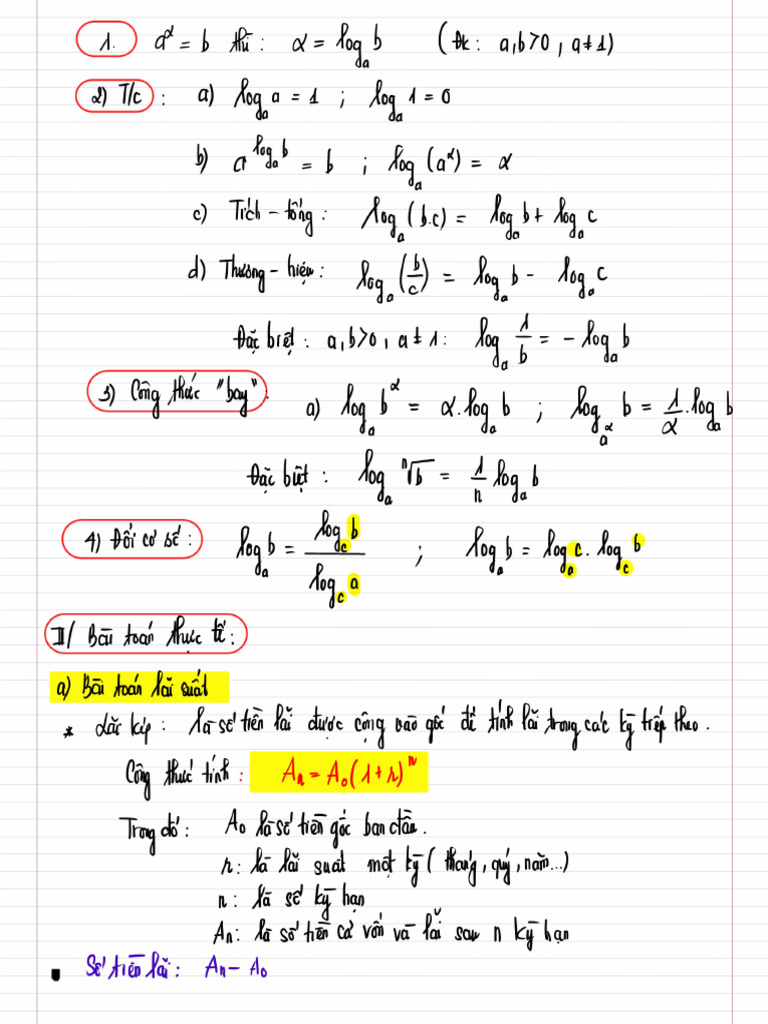 1. a^α = b thì : α = log_a b (Đk : a,b>0 , a≠1)
2) T/c : a) log_a a = 1 ; log_a 1 = 0
b) a^(log_a b) = b ; log_a (a^α) = α
c) Tích - tổng : log_a (b.c) = log_a b + log_a c
d) Thương - hiệu : log_a (b/c) = log_a b - log_a c
Đặc biệt : a,b>0 , a≠1 : log_a 1/b = - log_a b
3) Công thức "bay" : a) log_a b^α = α.log_a b ; log_(a^α) b = 1/α . log_a b
Đặc biệt : log_a ⁿ√b = 1/n log_a b
4) Đổi cơ số : log_a b = log_c b / log_c a ; log_a b = log_a c . log_c b
II/ Bài toán thực tế :
a) Bài toán lãi suất
* Lãi kép : là số tiền lãi được cộng vào gốc để tính lãi trong các kỳ tiếp theo.
Công thức tính : Aₙ = A₀(1+r)ⁿ
Trong đó : A₀ là số tiền gốc ban đầu.
r : là lãi suất một kỳ ( tháng , quý , năm...)
n : là số kỳ hạn
Aₙ : là số tiền cả vốn và lãi sau n kỳ hạn
Số tiền lãi : Aₙ - A₀